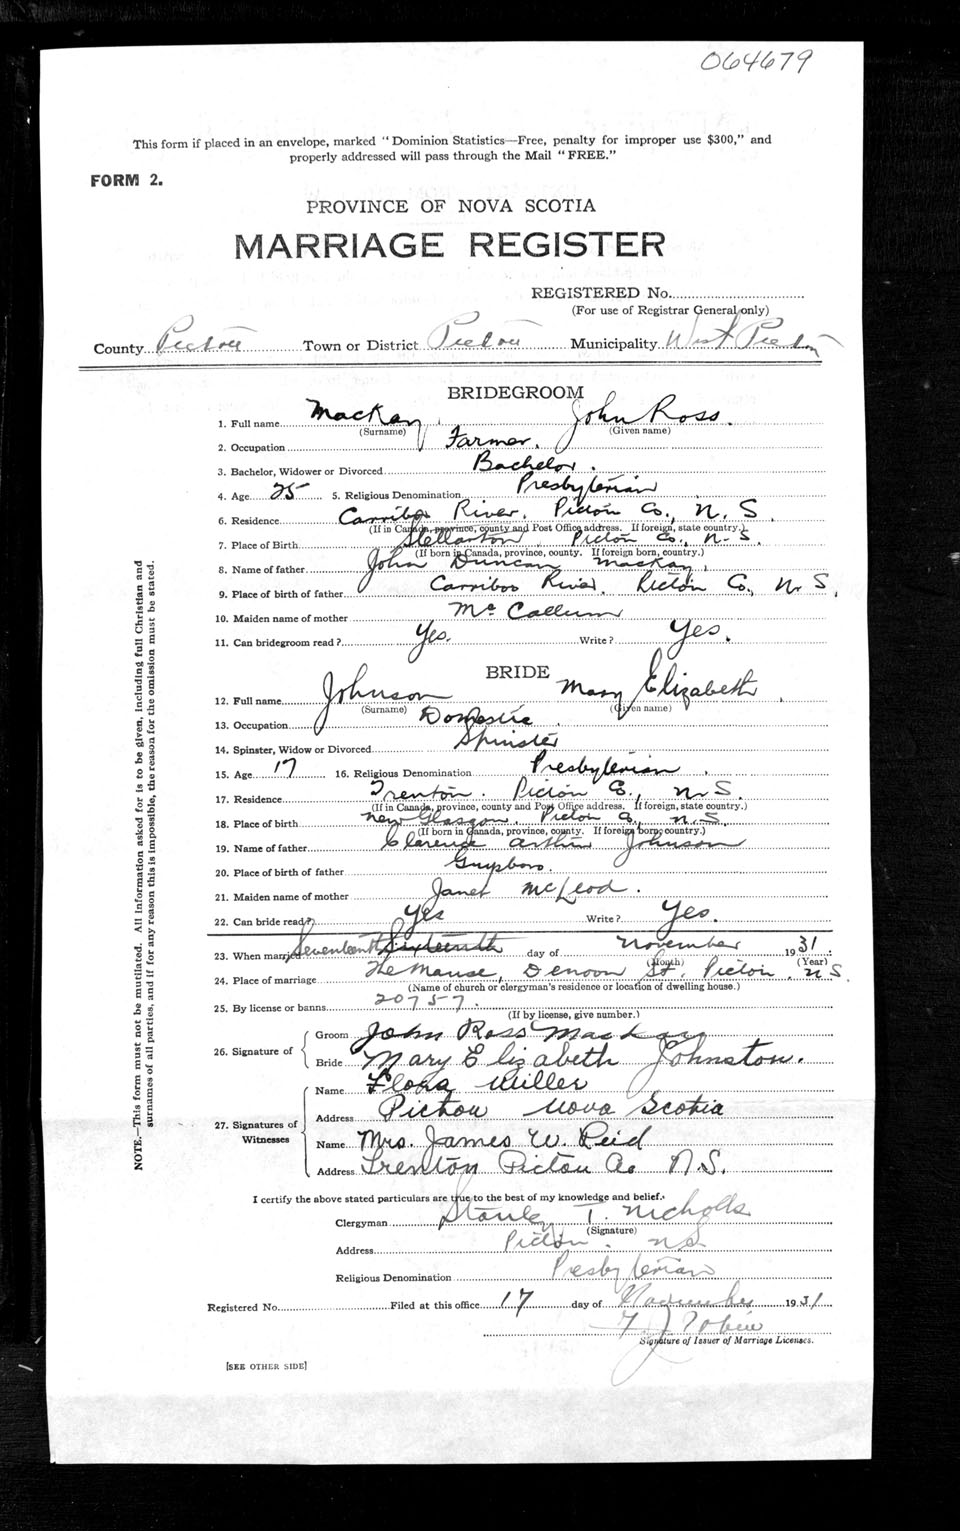 064679
This form if placed in an envelope, marked "Dominion Statistics—Free, penalty for improper use $300," and
properly addressed will pass through the Mail "FREE."
FORM 2.
PROVINCE OF NOVA SCOTIA
MARRIAGE REGISTER
REGISTERED No.
(For use of Registrar General only)
County Pictou Town or District Pictou Municipality West Pictou
BRIDEGROOM
1. Full name MacKay, John Ross.
(Surname) (Given name)
2. Occupation Farmer.
3. Bachelor, Widower or Divorced Bachelor.
4. Age 25 5. Religious Denomination Presbyterian
6. Residence Carribo River, Pictou Co., N. S.
(If in Canada, province, county and Post Office address. If foreign, state country.)
7. Place of Birth Stellarton, Pictou Co., N. S.
(If born in Canada, province, county. If foreign born, country.)
8. Name of father John Duncan MacKay,
9. Place of birth of father Carriboo River, Pictou Co., N. S.
10. Maiden name of mother McCallum
11. Can bridegroom read? Yes. Write? Yes.
BRIDE
12. Full name Johnson Mary Elizabeth
(Surname) (Given name)
13. Occupation Domestic
14. Spinster, Widow or Divorced Spinster
15. Age 17 16. Religious Denomination Presbyterian.
17. Residence Trenton. Pictou Co., N. S.
(If in Canada, province, county and Post Office address. If foreign, state country.)
18. Place of birth New Glasgow, Pictou Co., N. S.
(If born in Canada, province, county. If foreign born, country.)
19. Name of father Clarence Arthur Johnson
20. Place of birth of father Guysboro.
21. Maiden name of mother Janet McLeod.
22. Can bride read? Yes Write? Yes.
23. When married Seventeenth Sixteenth day of November 1931.
(Month) (Year)
24. Place of marriage The Manse, Denoon St. Pictou, N S.
(Name of church or clergyman's residence or location of dwelling house.)
25. By license or banns 20757.
(If by license, give number.)
26. Signature of
Groom John Ross MacKay
Bride Mary Elizabeth Johnston.
27. Signatures of Witnesses
Name Flora Miller
Address Pictou Nova Scotia
Name Mrs. James W. Reid
Address Trenton Pictou Co N.S.
I certify the above stated particulars are true to the best of my knowledge and belief.
Clergyman Stanley T. Nicholls
(Signature)
Address Pictou. N.S.
Religious Denomination Presbyterian
Registered No. Filed at this office 17 day of November 1931
Signature of Issuer of Marriage Licenses.
[SEE OTHER SIDE]
NOTE.—This form must not be mutilated. All information asked for is to be given, including full Christian and
surnames of all parties, and if for any reason this is impossible, the reason for the omission must be stated.